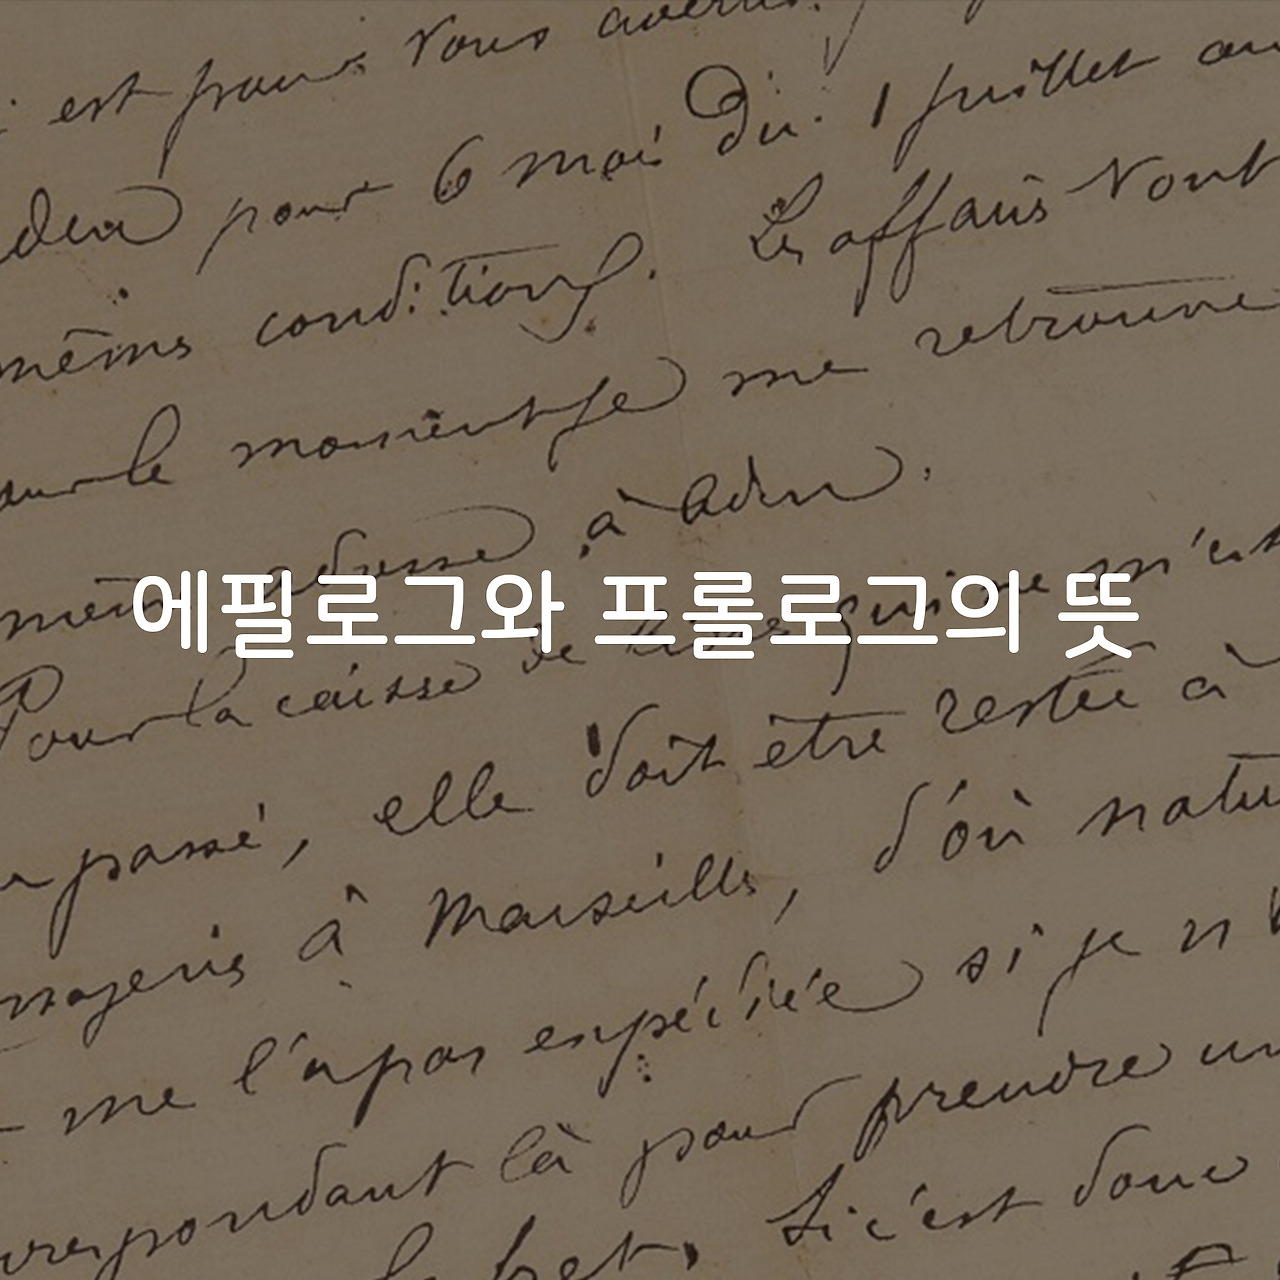 est pour vous
pour 6 mois Du 1 juillet
mêmes conditions. Les affaires vont
pour le moment je me retrouve
même adresse, à Aden.
에필로그와 프롤로그의 뜻
Pour la caisse de qui ne m'est
passé, elle doit être restée à
à Marseille, d'où
me l'a pas expédiée si je n
là pour prendre
Si c'est donc